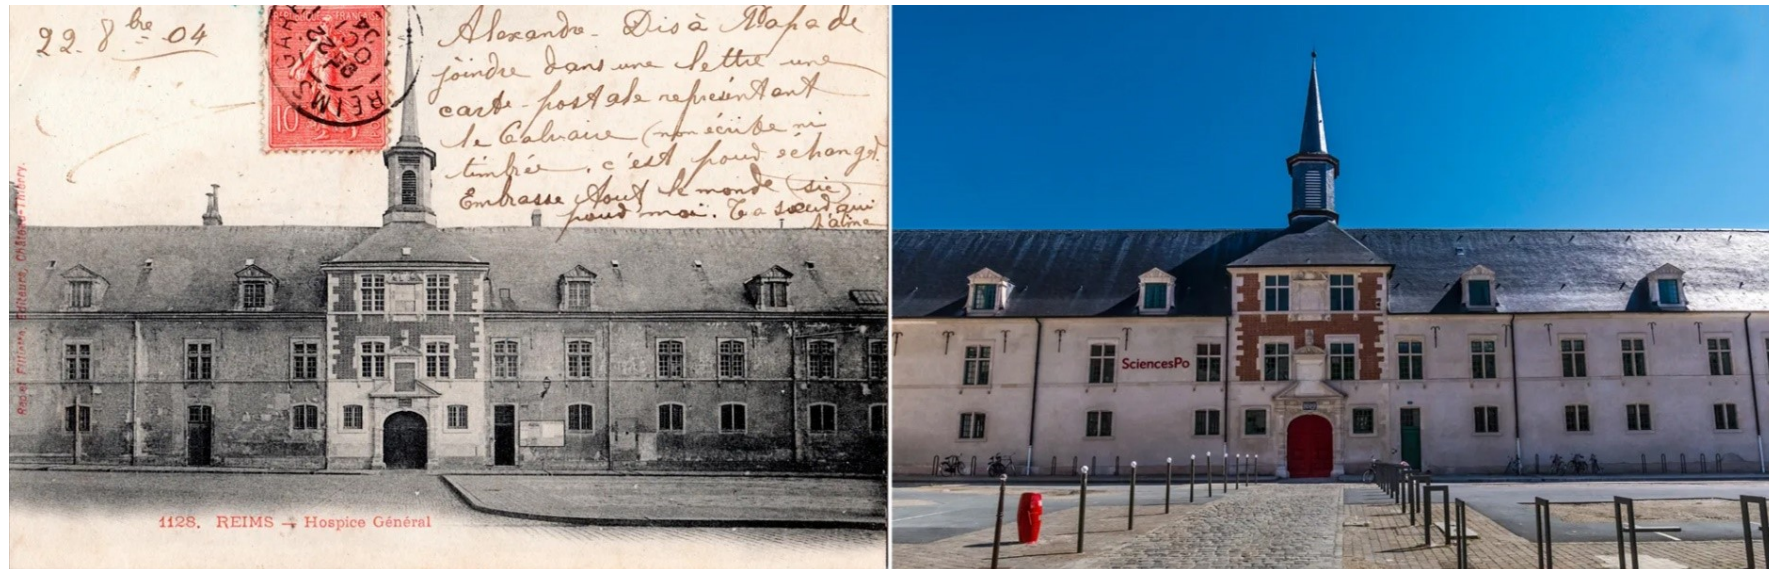 22. 8bre 04
REPUBLIQUE FRANÇAISE
10
REIMS
Alexandre - Dis à Papa de
joindre dans une lettre une
carte-postale représentant
le Calvaire (non écrite ni
timbrée, c'est pour échanger.
Embrasse tout le monde (sic)
pour moi. Ta sœur qui
t'aime
Repos Filliette, Editeurs, Château-Thierry.
1128. REIMS - Hospice Général
SciencesPo